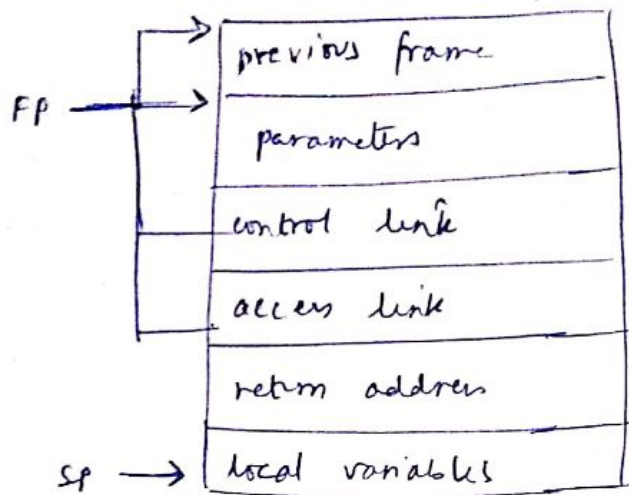 previous frame
FP
parameters
control link
access link
return address
SP
local variables